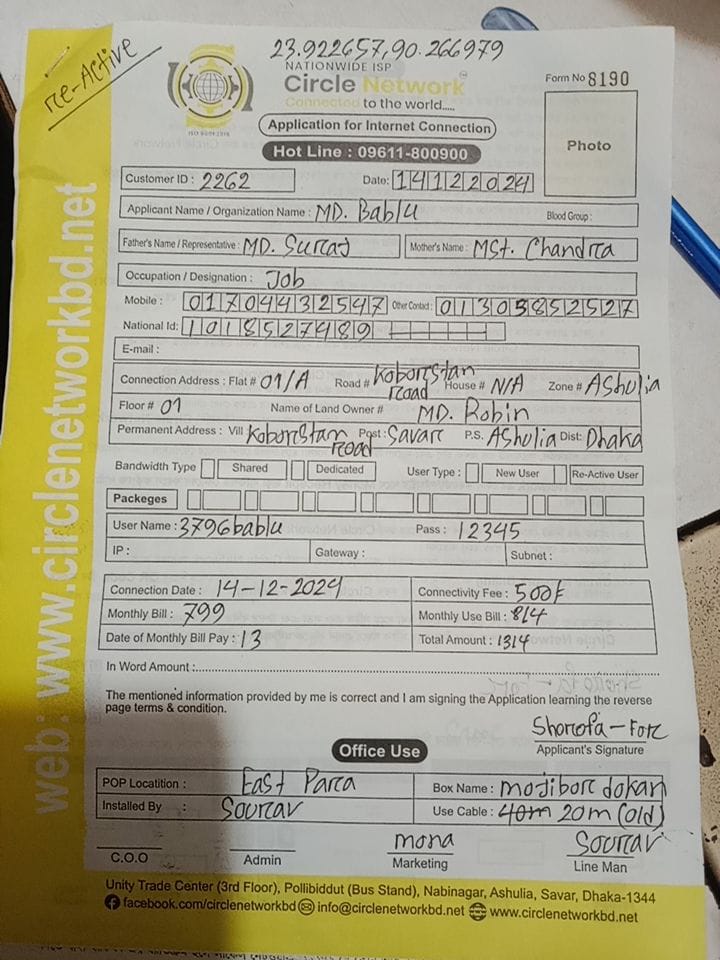 23.922657,90.266979
re-Active
NATIONWIDE ISP
Circle Network
Connected to the world.....
ISO 9001:2015
Form No 8190
Application for Internet Connection
Hot Line : 09611-800900
Photo
Customer ID : 2262 Date: 14122024
Applicant Name / Organization Name : MD. Bablu Blood Group :
Father's Name / Representative : MD. Suraj Mother's Name : MSt. Chandra
Occupation / Designation : Job
Mobile : 01704432547 Other Contact : 01305852527
National Id: 1018527489
E-mail :
Connection Address : Flat # 01/A Road # Koborstan road House # N/A Zone # AShulia
Floor # 01 Name of Land Owner # MD. Robin
Permanent Address : Vill Koborstan road Post : Savar P.S. AShulia Dist: Dhaka
Bandwidth Type Shared Dedicated User Type : New User Re-Active User
Packeges
User Name : 3796bablu Pass : 12345
IP : Gateway : Subnet :
Connection Date : 14-12-2024 Connectivity Fee : 500
Monthly Bill : 799 Monthly Use Bill : 814
Date of Monthly Bill Pay : 13 Total Amount : 1314
In Word Amount :
The mentioned information provided by me is correct and I am signing the Application learning the reverse
page terms & condition.
Shorofa-For
Applicant's Signature
Office Use
POP Locatition : East Para Box Name : mojibor dokan
Installed By : Sourav Use Cable : 40m 20m (old)
mona Sourav
C.O.O Admin Marketing Line Man
Unity Trade Center (3rd Floor), Pollibiddut (Bus Stand), Nabinagar, Ashulia, Savar, Dhaka-1344
facebook.com/circlenetworkbd info@circlenetworkbd.net www.circlenetworkbd.net
web: www.circlenetworkbd.net